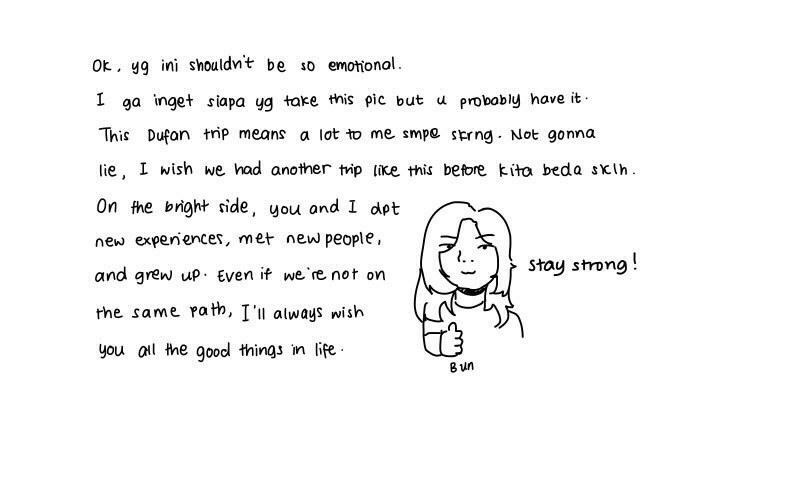 Ok, yg ini shouldn't be so emotional.
I ga inget siapa yg take this pic but u probably have it.
This Dufan trip means a lot to me smpe skrng. Not gonna
lie, I wish we had another trip like this before kita beda sklh.
On the bright side, you and I dpt
new experiences, met new people,
and grew up. Even if we're not on
the same path, I'll always wish
you all the good things in life.
stay strong!
Bun